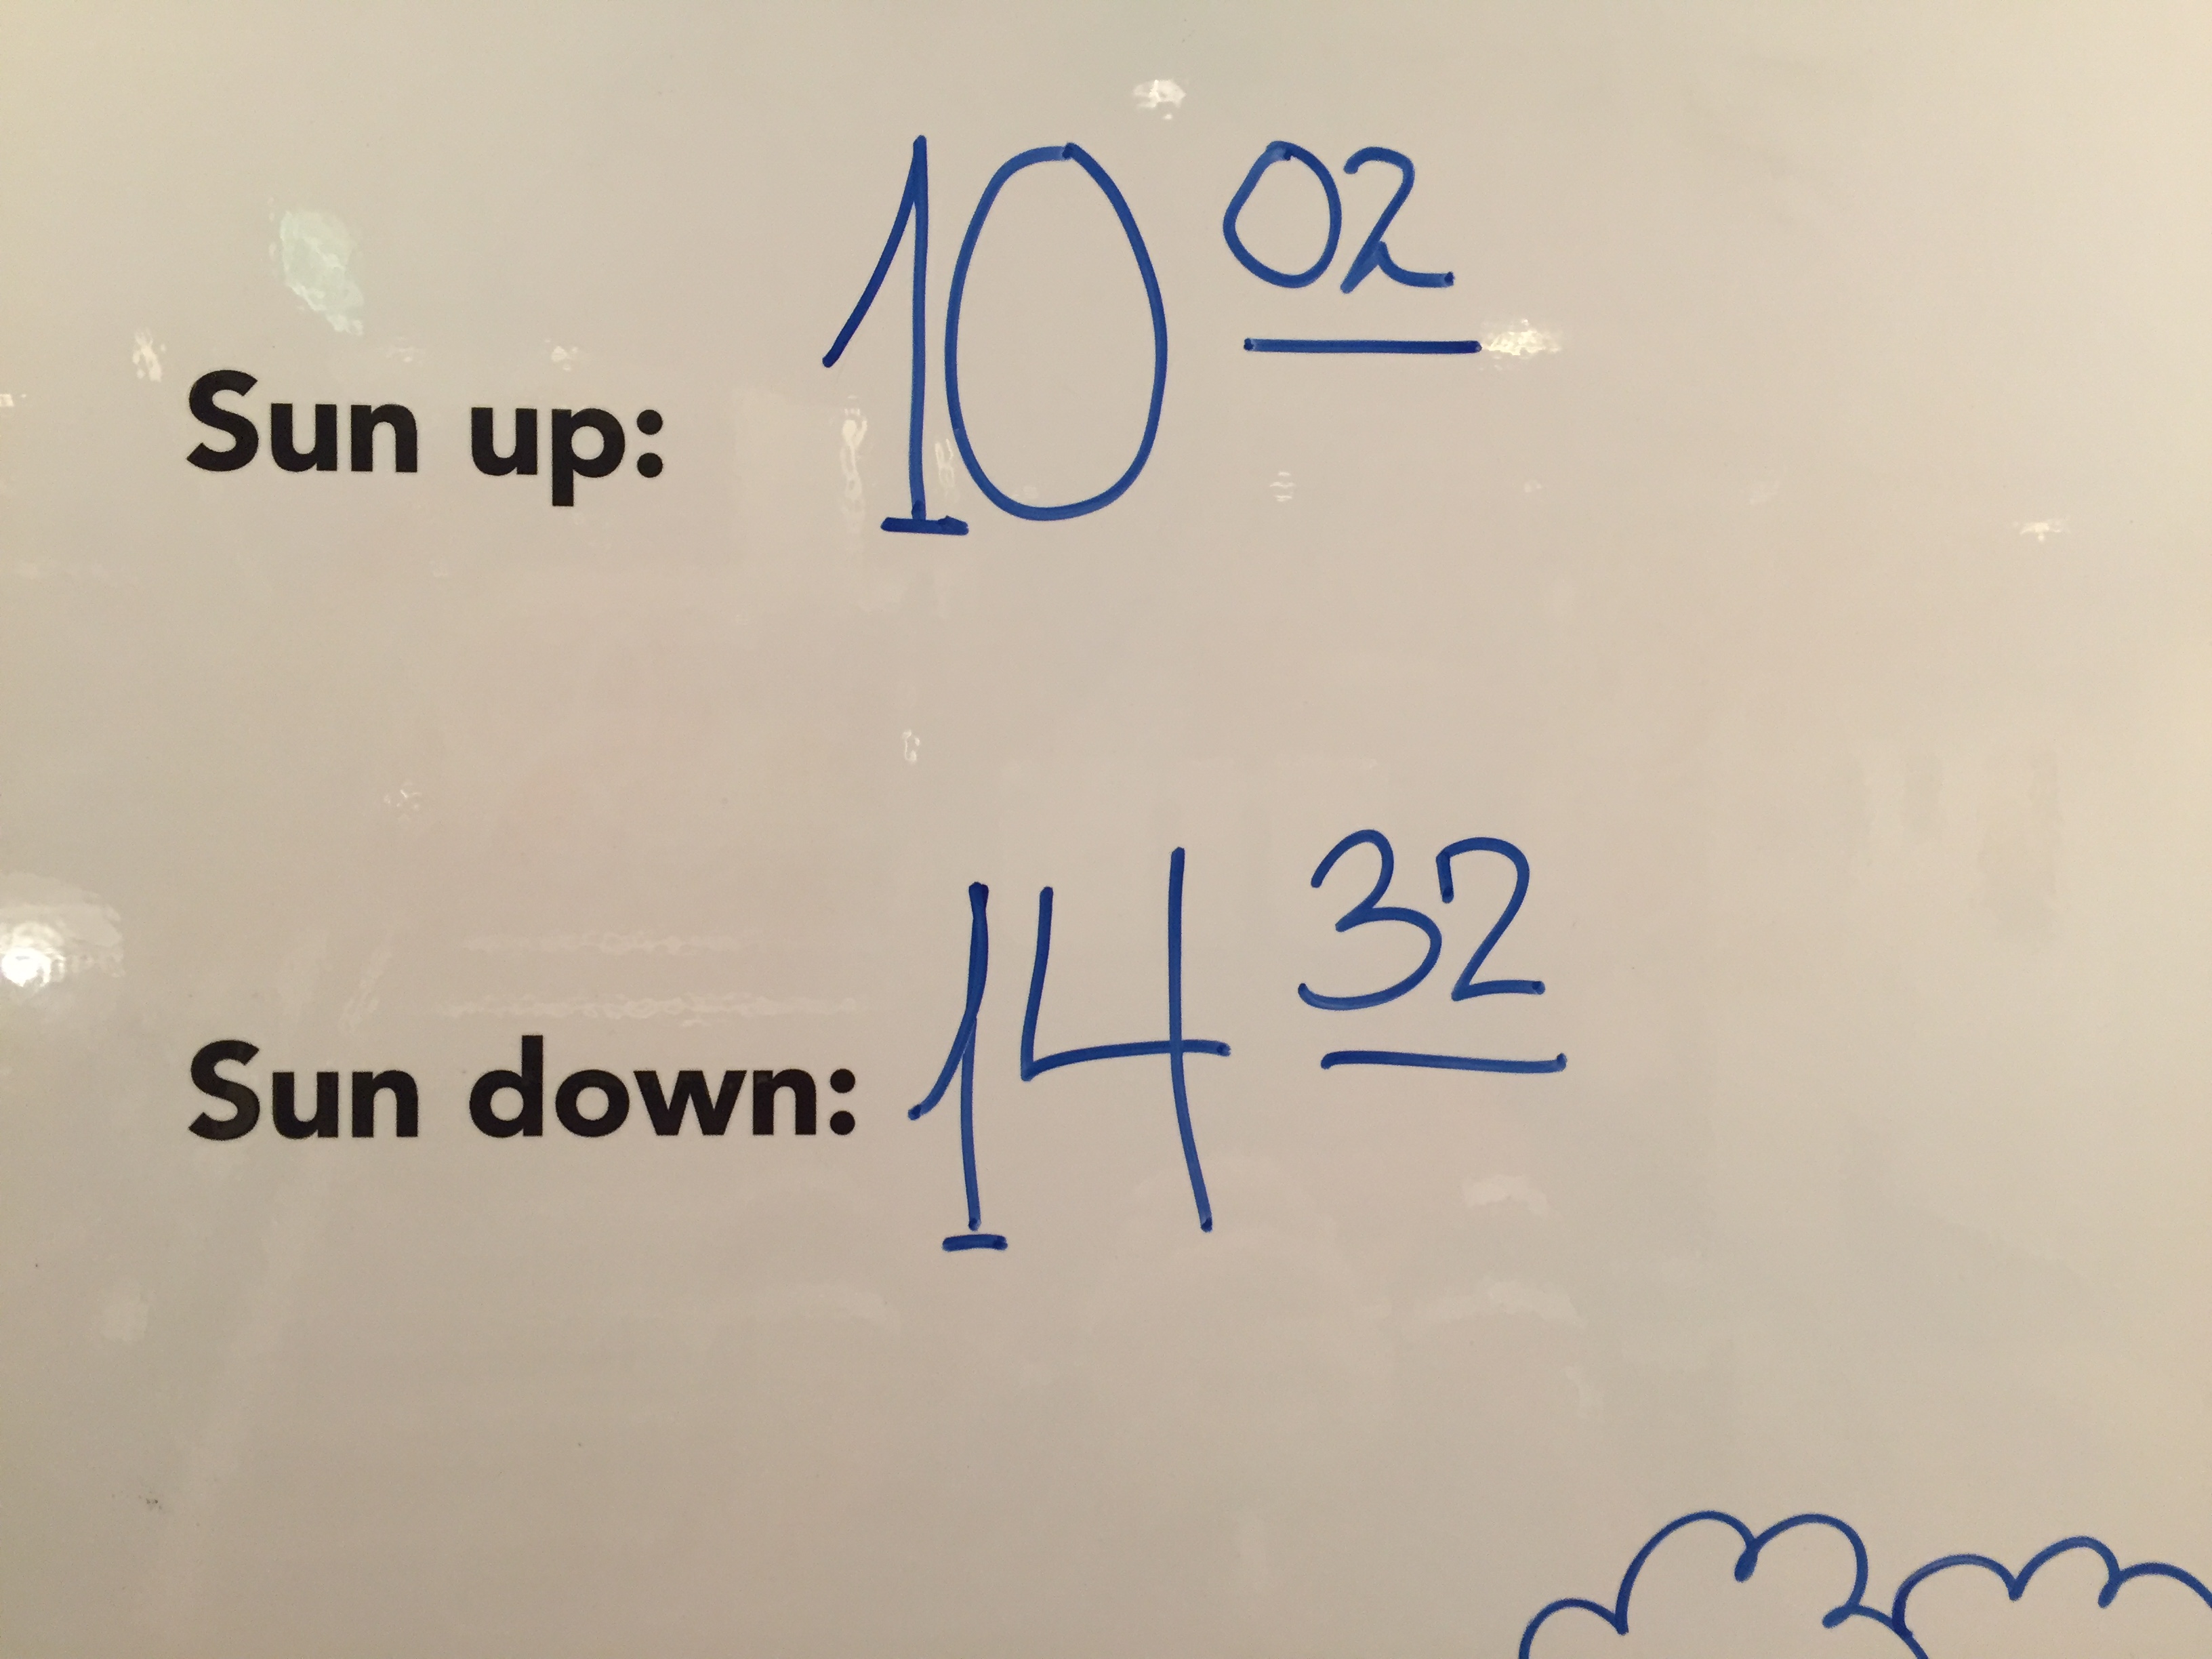 Sun up: 10 02
Sun down: 14 32